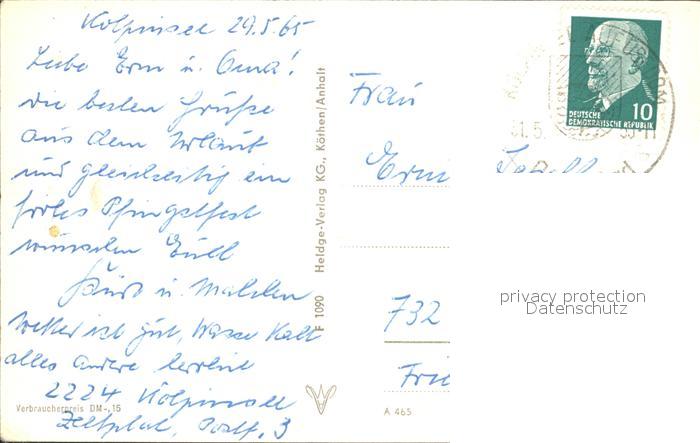 Kolpinsee 29.5.65
Liebe Erni u. Oma!
die besten Grüße
aus dem Urlaub
und gleichzeitig ein
frohes Pfingstfest
wünschen Euch
u.
Wetter ist gut, Wasser kalt
alles andere herrlich
2224 Kolpinsee
Zeltplatz, Postf. 3
Verbraucherpreis DM -,15
F 1090 Heldge-Verlag KG., Köthen/Anhalt
Frau
Erni
732
Frie
A 465
10
DEUTSCHE
DEMOKRATISCHE REPUBLIK
31.5.
privacy protection
Datenschutz